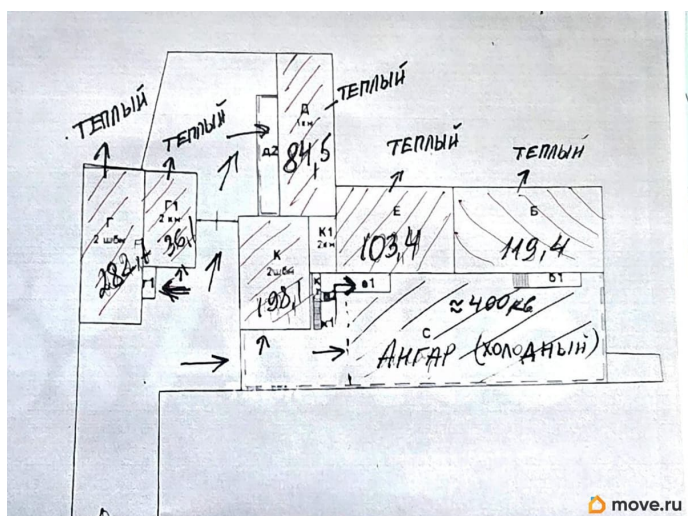 ТЕПЛЫЙ
ТЕПЛЫЙ
ТЕПЛЫЙ
ТЕПЛЫЙ
ТЕПЛЫЙ
Д
1кн
84,5
д2
Г
2 швк
282,1
Г1
2 кн
36,1
г1
К
2швк
198,1
К1
2кн
Е
103,4
Б
119,4
К
к1
в1
б1
≈400кв
С
АНГАР (ХОЛОДНЫЙ)
move.ru